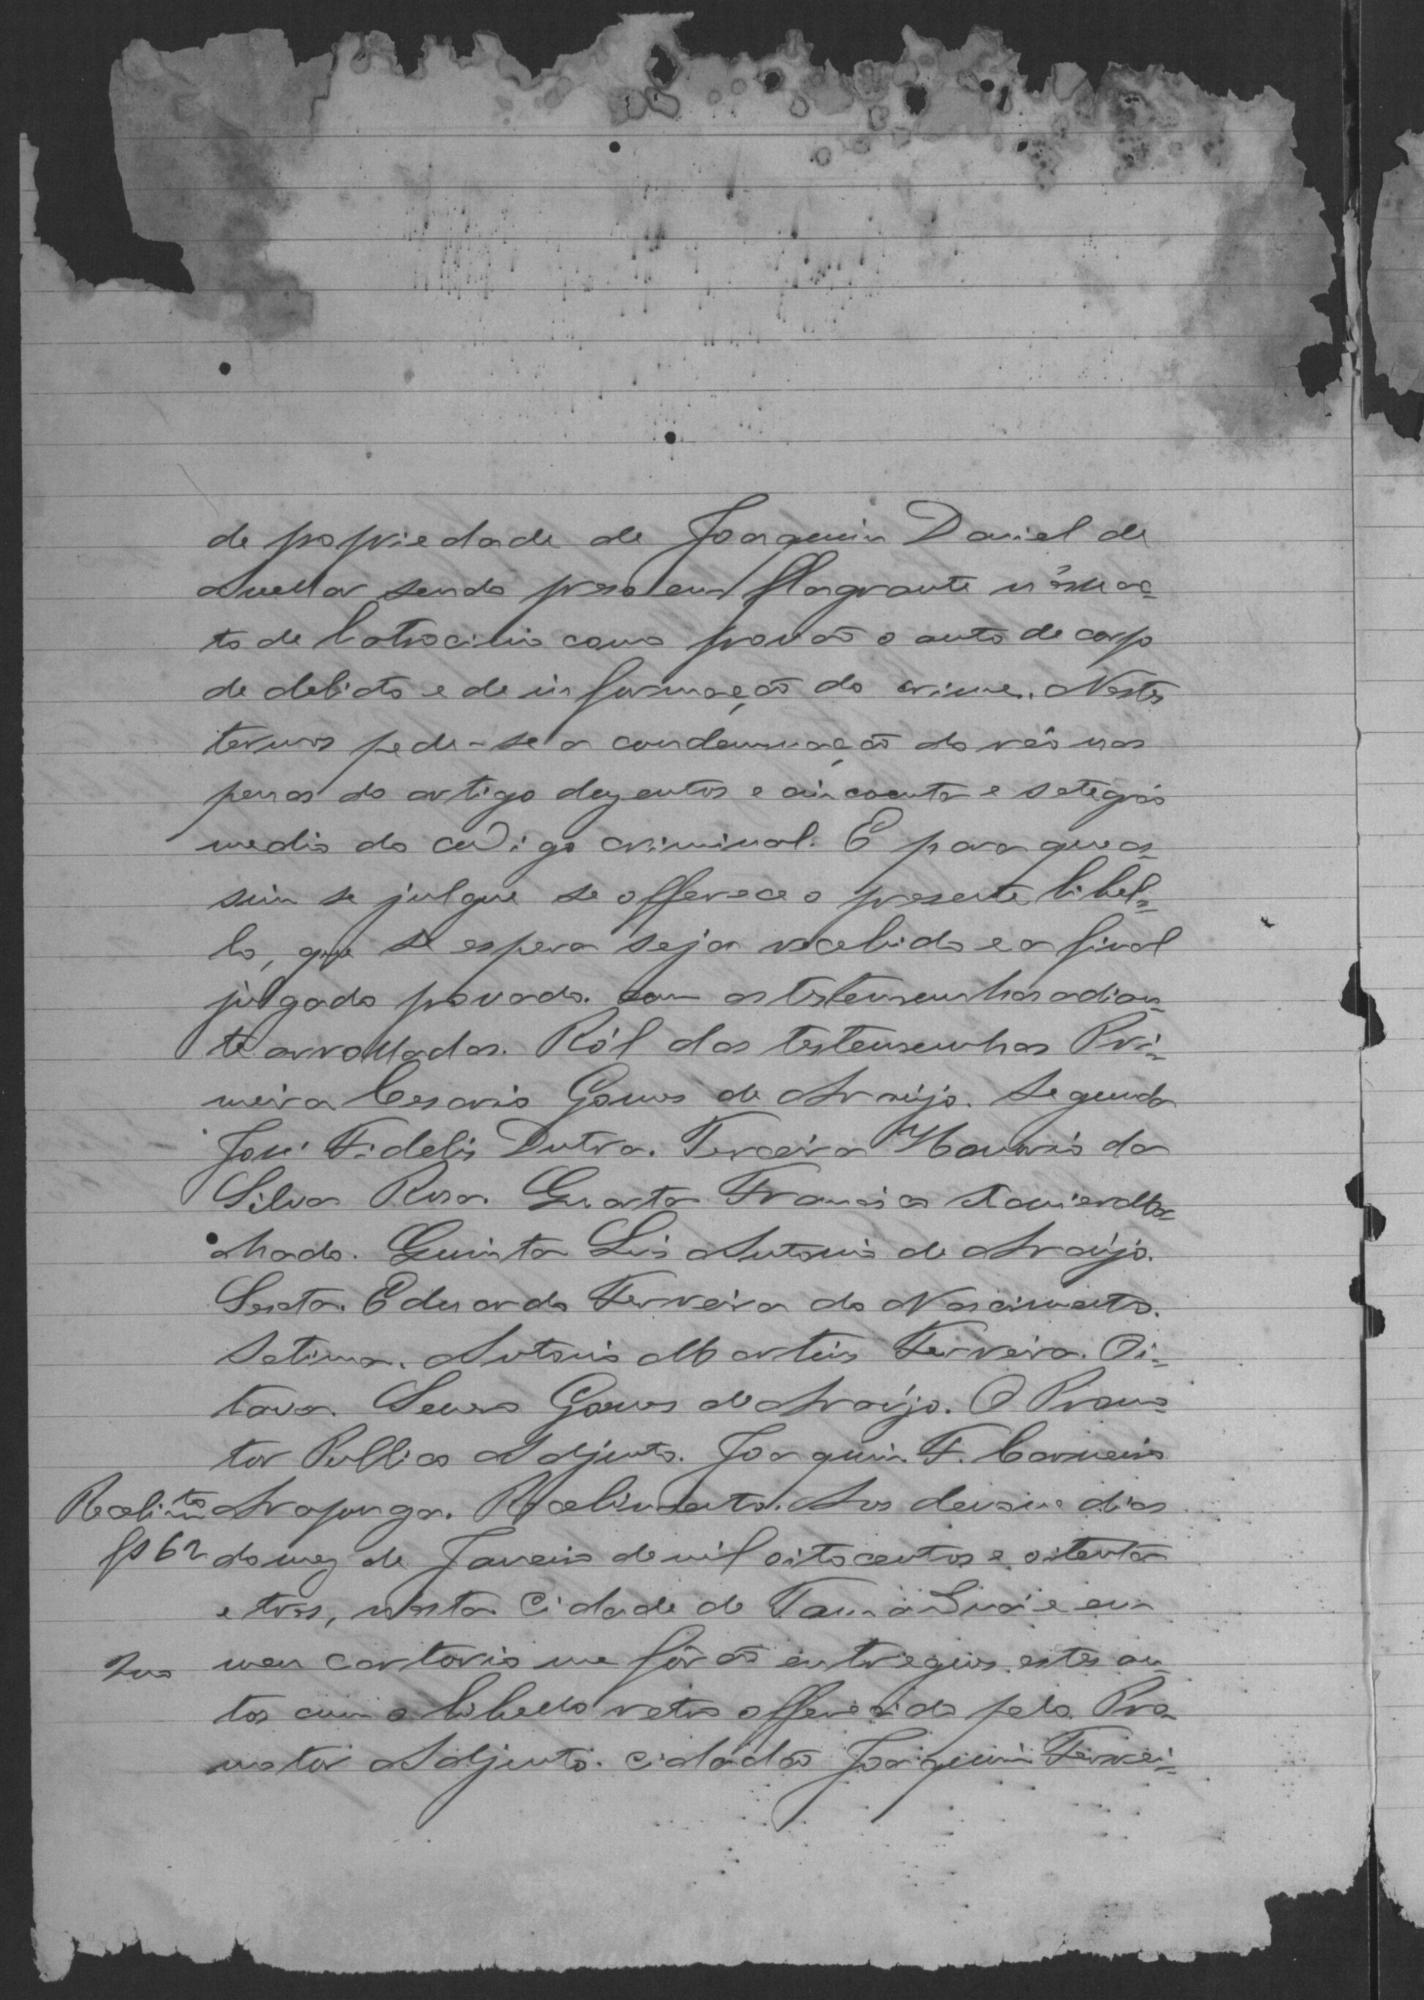 de propriedade de Joaquim Daniel de
Avellar sendo preso em flagrante n'esse ac-
to de latrocinio como provão o auto de corpo
de delicto e de informação do crime. Nestes
termos pede-se a condemnação do réo nas
penas do artigo duzentos e cincoenta e sete gráo
medio do codigo criminal. E para que as-
sim se julgue se offerece o presente libel-
lo, que se espera seja recebido e a final
julgado provado. com as testemunhas adian-
te arrolladas. Ról das testemunhas Pri-
meira Cesario Gomes de Araujo. Segunda
José Fidelis Dutra. Terceira da
Silva Rosa. Quarta Francisco Xavier Ma-
chado. Quinta Luis Antonio de Araújo.
Sexta. Eduardo Ferreira do Nascimento.
Setima. Antonio Martins Ferreira. Oi-
tava. Gomes de Araújo. O Promo-
tor Publico Adjunto. Joaquim F. Carneiro
Recebimto Araponga. Recebimento. Aos dias
fs 62 do mez de Janeiro de mil oitocentos e oitenta
e tres, nesta Cidade de e em
meu cartorio me fôrão entregues estes au-
tos com o libello retro offerecido pelo Pro-
motor Adjunto. cidadão Joaquim Ferrei-